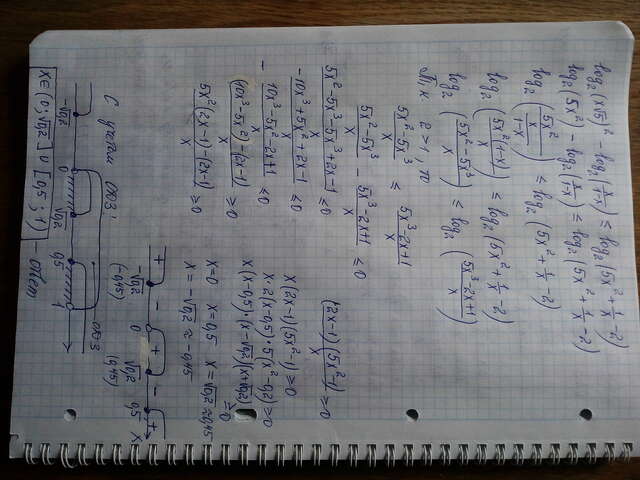 log₂(x√5)² - log₂(1/(1-x)) ≤ log₂(5x² + 1/x - 2)
log₂(5x²) - log₂(1/(1-x)) ≤ log₂(5x² + 1/x - 2)
log₂(5x²/(1/(1-x))) ≤ log₂(5x² + 1/x - 2)
log₂(5x²(1-x)) ≤ log₂(5x² + 1/x - 2)
log₂((5x² - 5x³)/x) ≤ log₂((5x³ - 2x + 1)/x)
Т.к 2 > 1, то
(5x² - 5x³)/x ≤ (5x³ - 2x + 1)/x
(5x² - 5x³)/x - (5x³ - 2x + 1)/x ≤ 0
(5x² - 5x³ - 5x³ + 2x - 1)/x ≤ 0
(-10x³ + 5x² + 2x - 1)/x ≤ 0
- (10x³ - 5x² - 2x + 1)/x ≤ 0
((10x³ - 5x²) - (2x - 1))/x ≥ 0
(5x²(2x - 1) - (2x - 1))/x ≥ 0
((2x - 1)(5x² - 1))/x ≥ 0
x(2x - 1)(5x² - 1) ≥ 0
x·2(x - 0,5)·5(x² - 0,2) ≥ 0
x(x - 0,5)·(x - √0,2)(x + √0,2) ≥ 0
x = 0 x = 0,5 x = √0,2 ≈ 0,45
x = -√0,2 ≈ -0,45
+ - + - +
-√0,2 0 √0,2 0,5 x
(-0,45) (0,45)
С учетом ООЗ:
ООЗ
-√0,2 0 √0,2 0,5 1
x ∈ (0; √0,2] ∪ [0,5; 1) - ответ